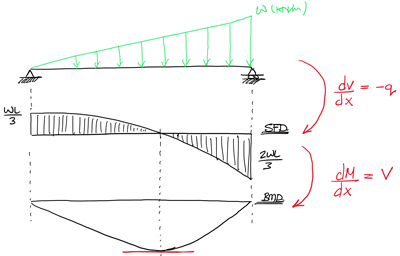 W(kN/m)
dV/dx = -q
WL/3
SFD
2WL/3
dM/dx = V
BMD